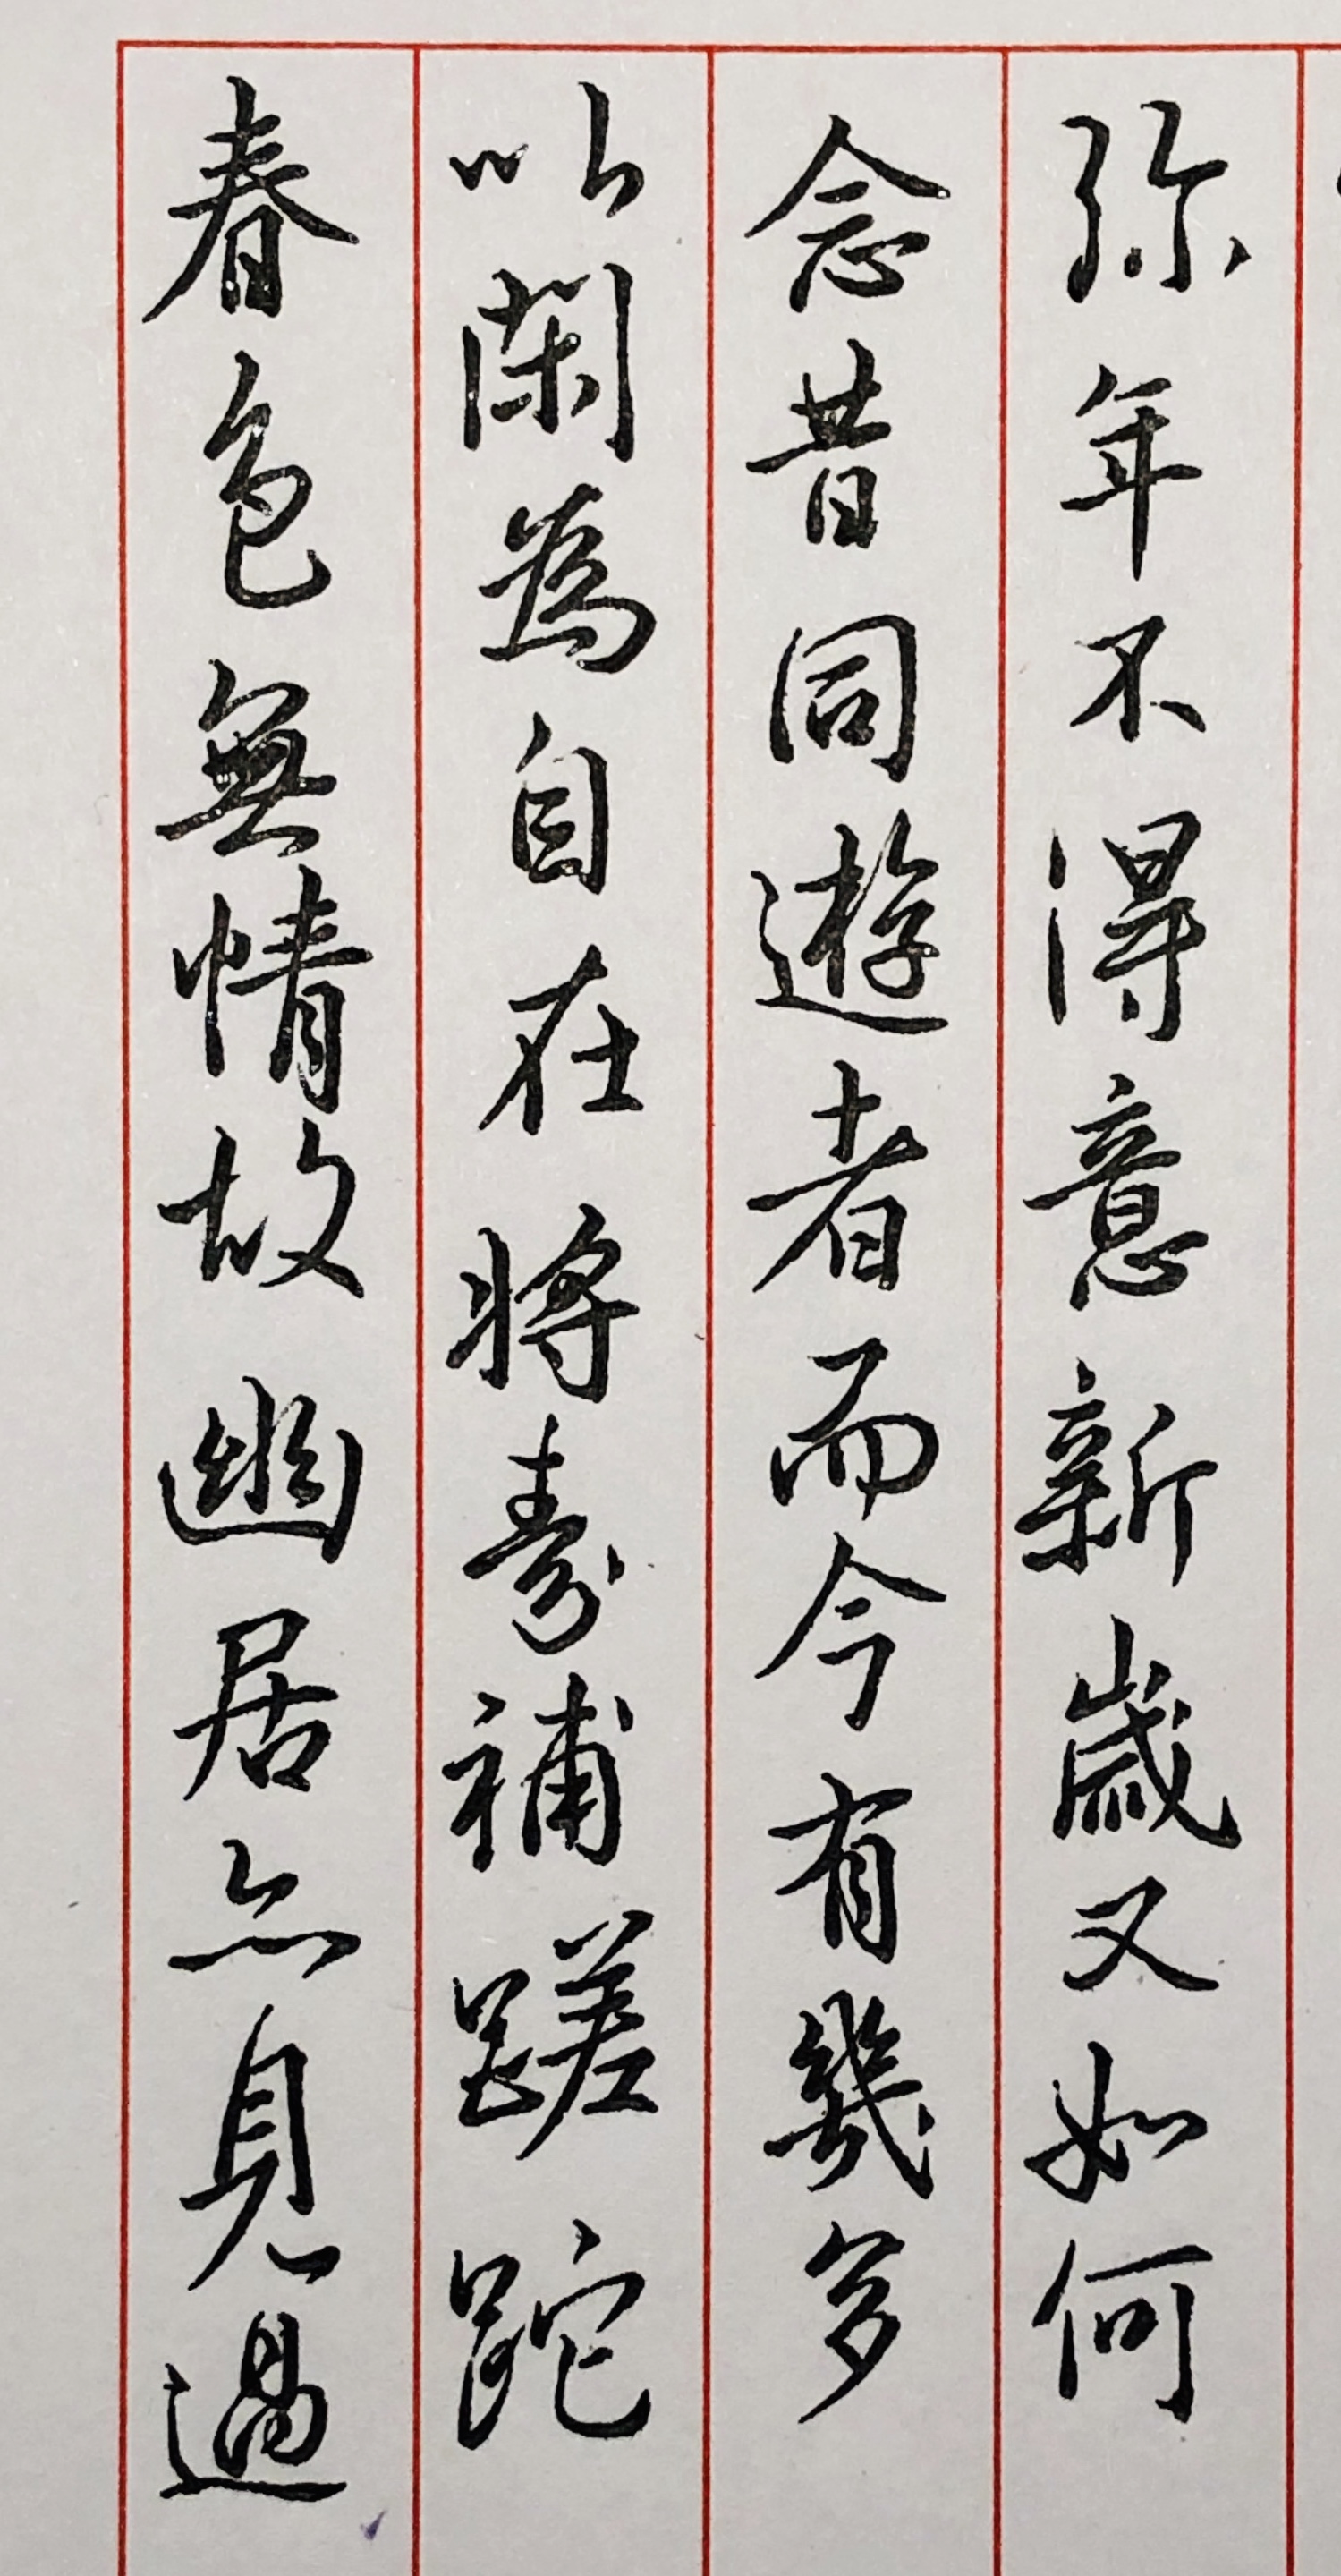 弥年不得意新歲又如何
念昔同遊者而今有幾多
以閑為自在將壽補蹉跎
春色無情故幽居亦見過